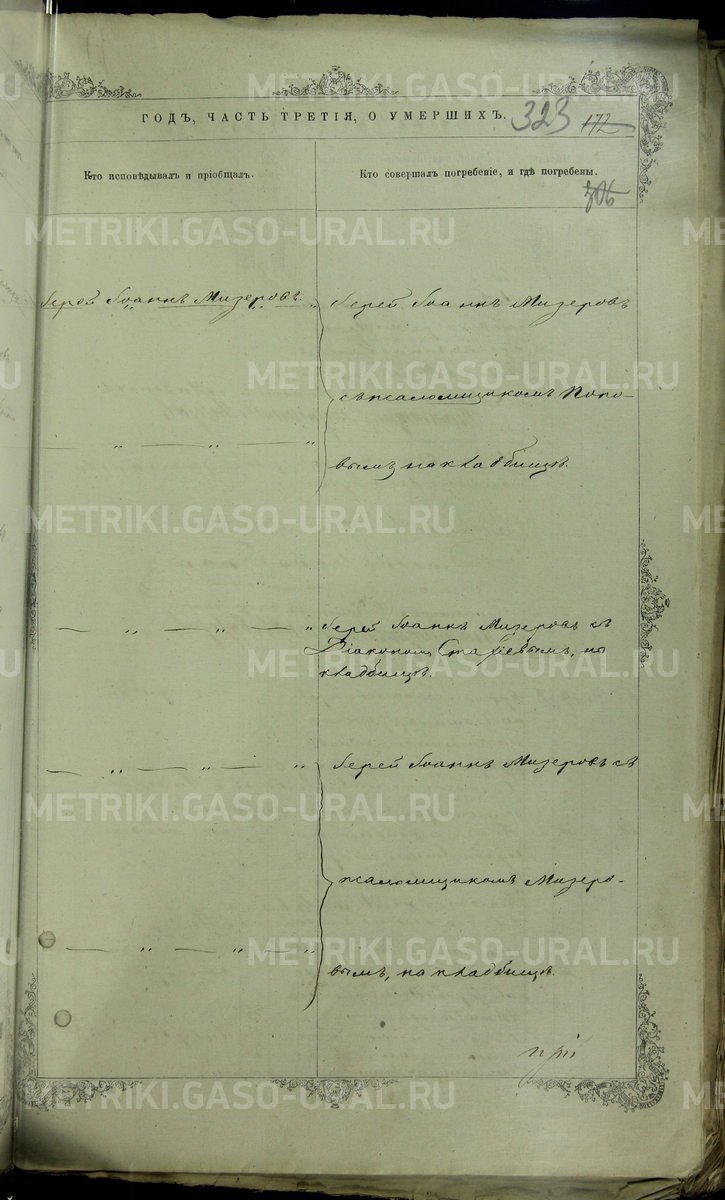 METRIKI.GASO-URAL.RU
ГОДЪ, ЧАСТЬ ТРЕТІЯ, О УМЕРШИХЪ. 323 172
Кто исповѣдывалъ и пріобщалъ.
Кто совершалъ погребеніе, и гдѣ погребены.
306
Іерей Іоаннъ Мизеровъ.
Іерей Іоаннъ Мизеровъ
съ псаломщикомъ Попо-
вымъ на кладбищѣ.
— „ — „ — „
Іерей Іоаннъ Мизеровъ съ
Діакономъ Стафіевымъ, на
кладбищѣ.
— „ — „ — „
Іерей Іоаннъ Мизеровъ съ
псаломщикомъ Мизеро-
вымъ, на кладбищѣ.
— „ — „ — „
при